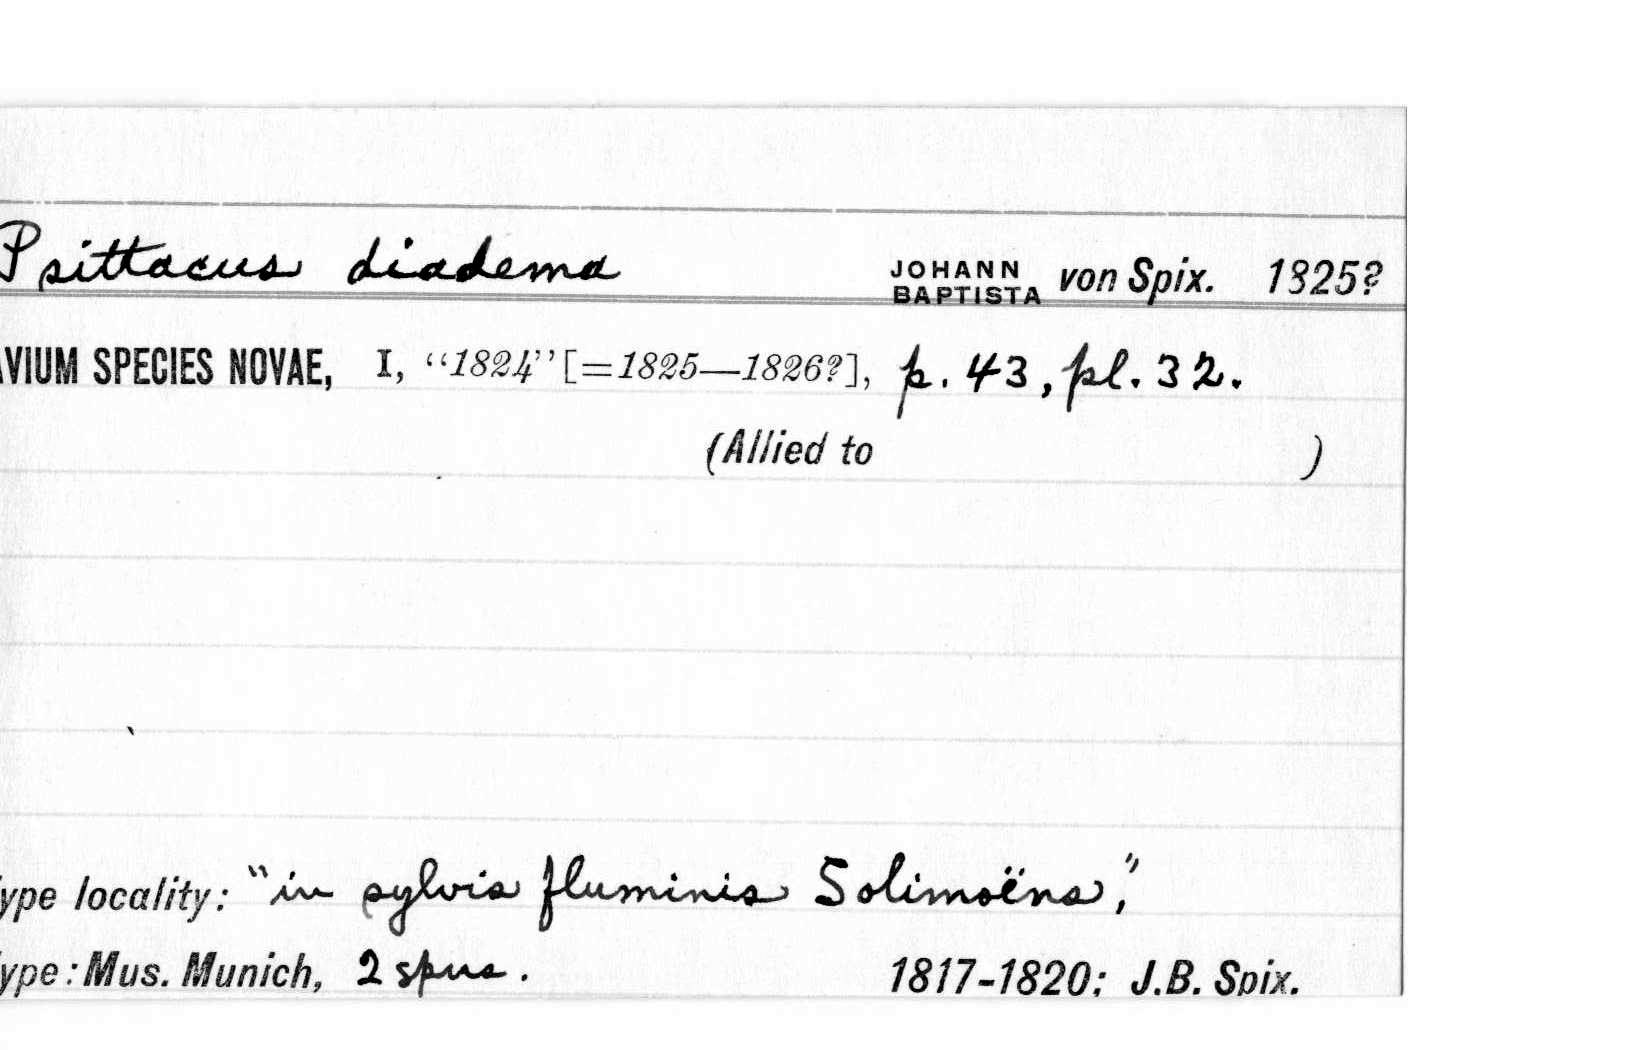 Psittacus diadema JOHANN BAPTISTA von Spix. 1825?
AVIUM SPECIES NOVAE, I, “1824” [=1825—1826?], p. 43, pl. 32.
(Allied to )
ype locality: "in sylvis fluminis Solimoëns",
ype: Mus. Munich, 2 spns. 1817-1820; J.B. Spix.